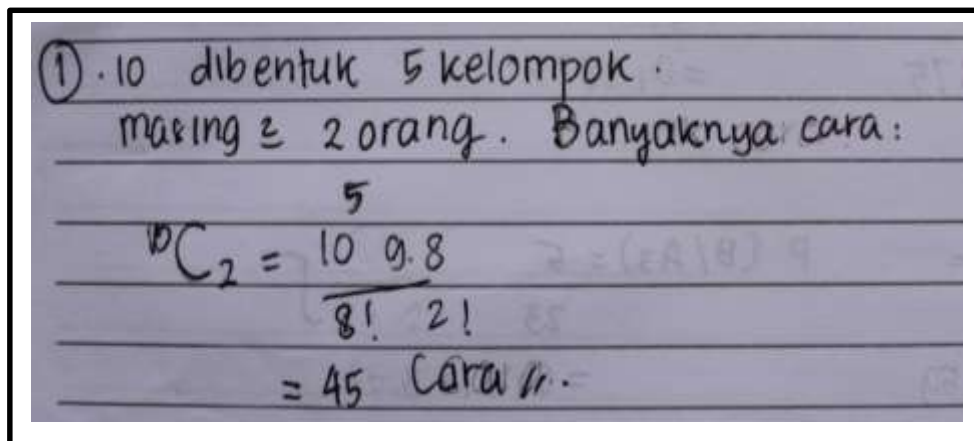 ① . 10 dibentuk 5 kelompok .
masing 2 2 orang . Banyaknya cara :
5
¹⁰C₂ = 10 9.8
8! 2!
= 45 Cara //.